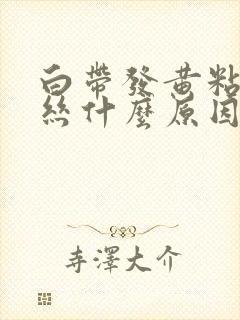 白帶發黃粘
絲什麼原因
寺澤大介